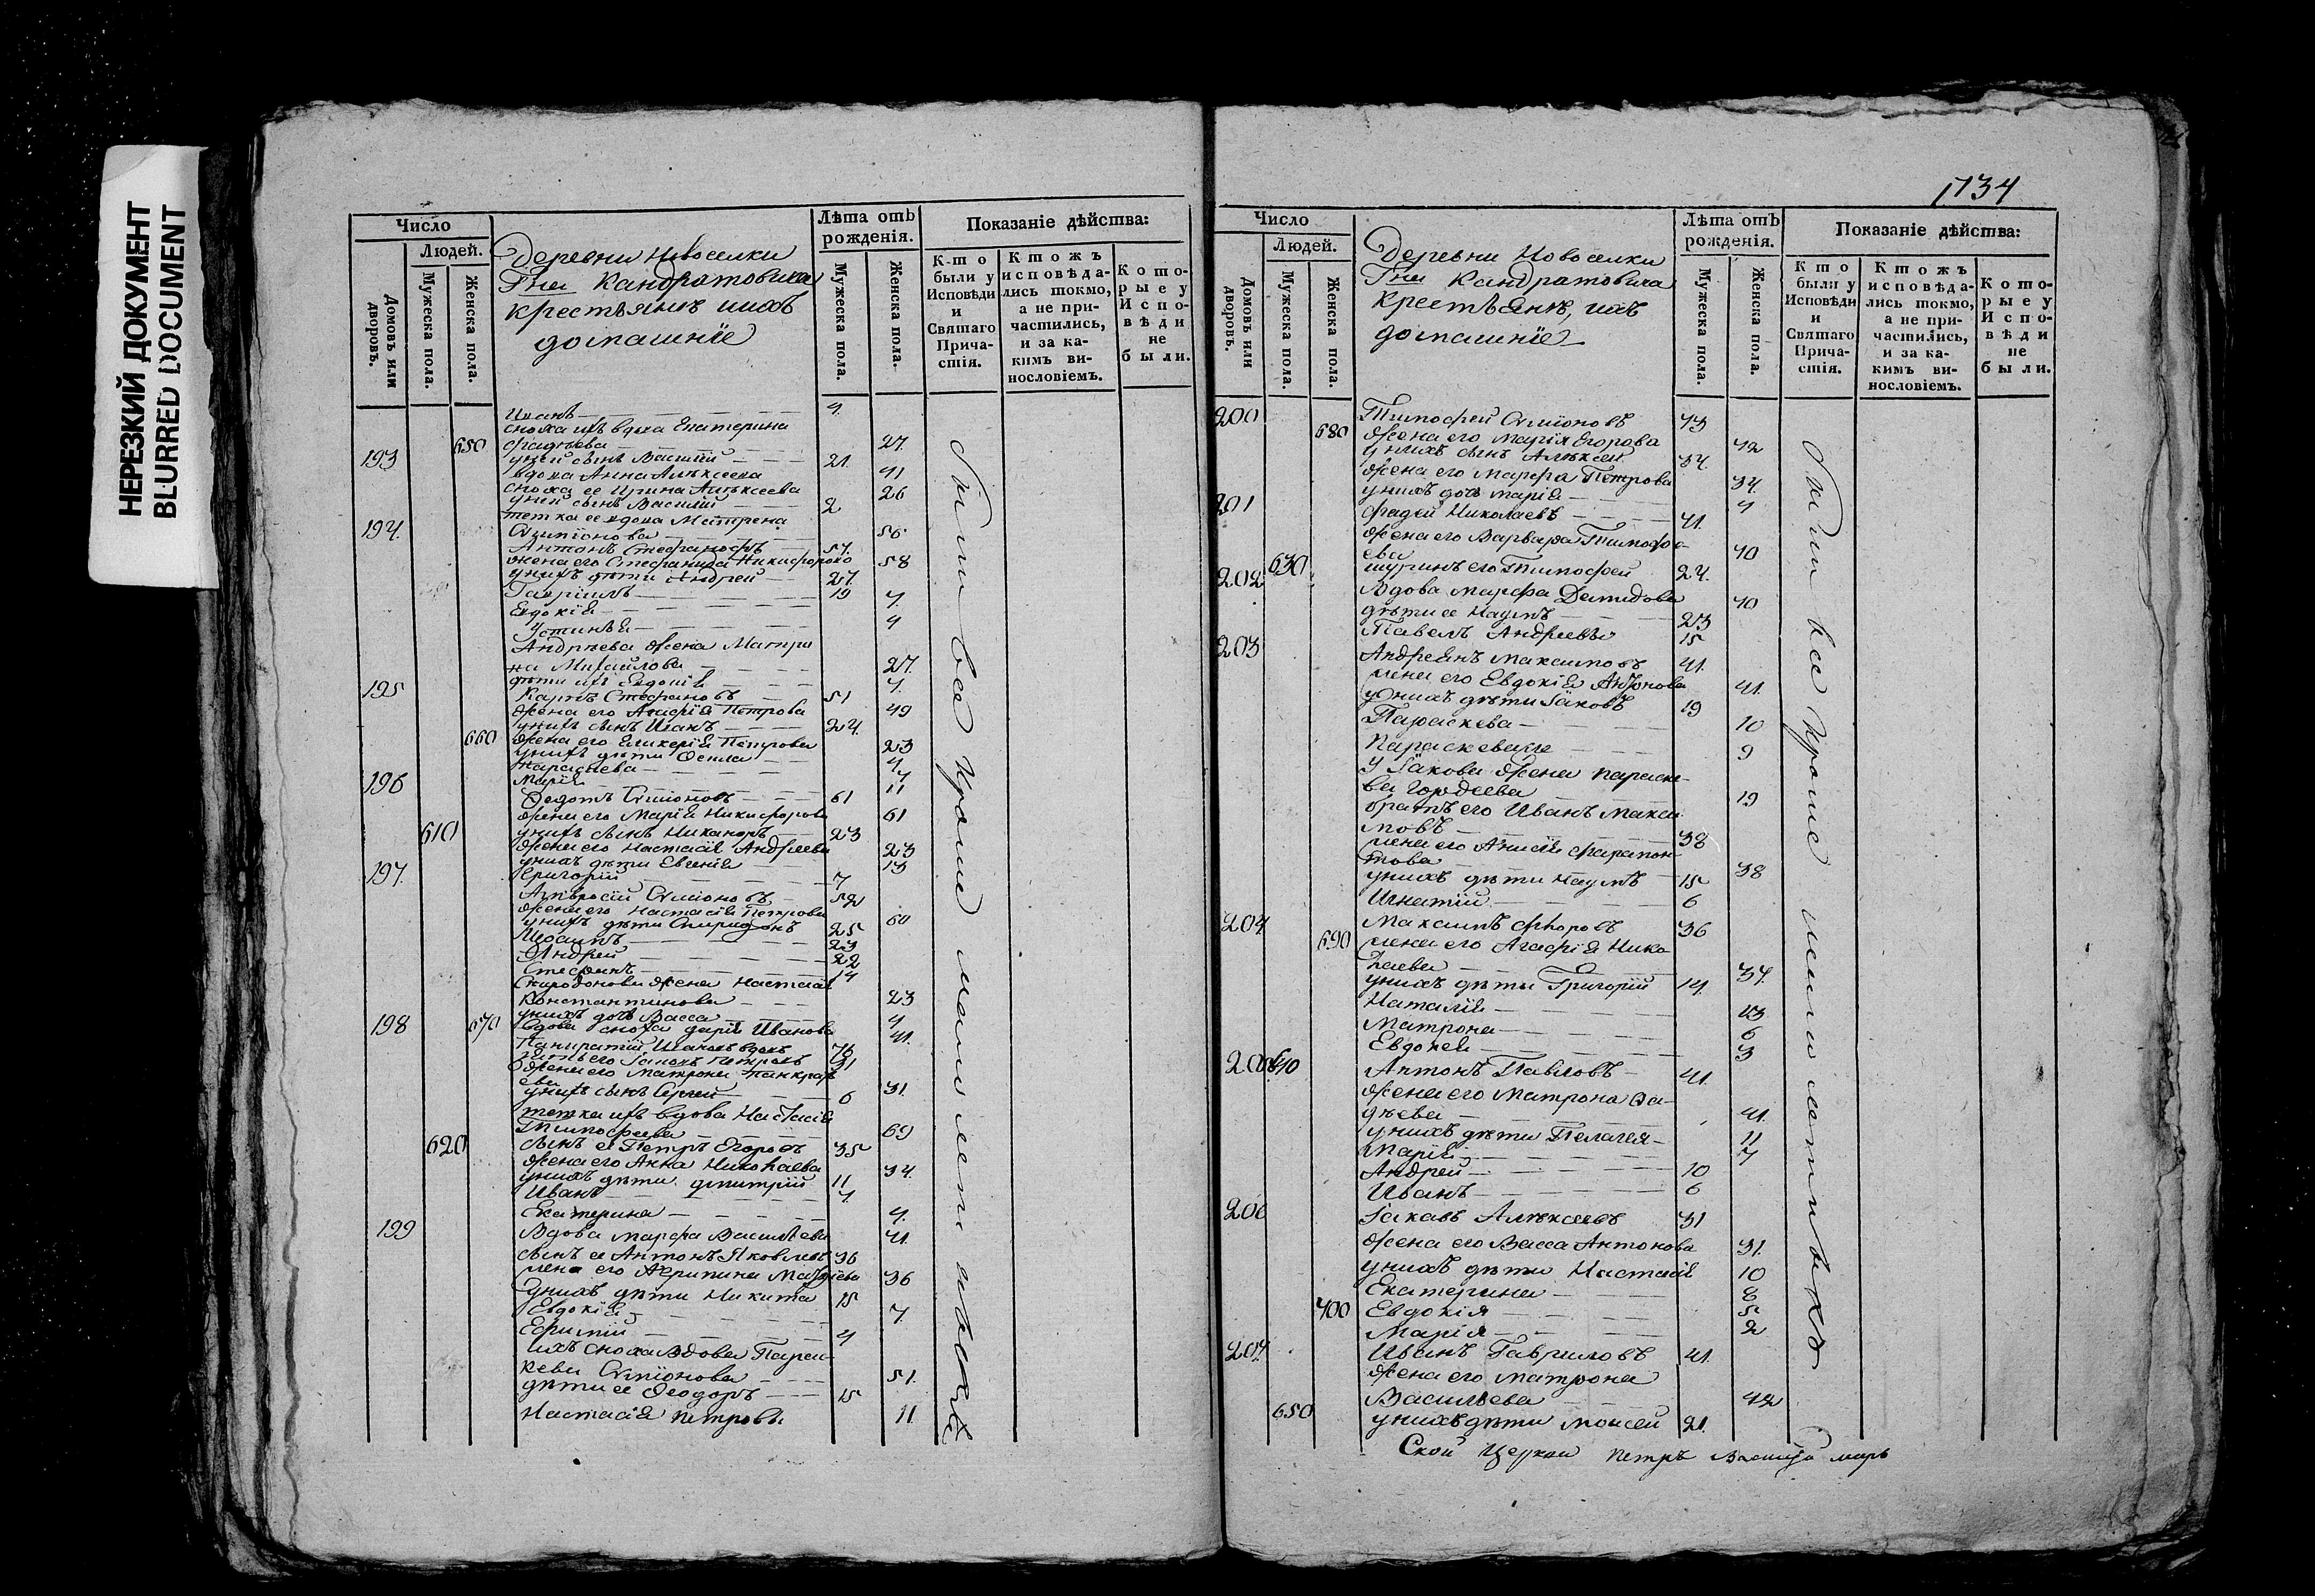 НЕРЕЗКИЙ ДОКУМЕНТ
BLURRED DOCUMENT
Число
Людей.
Домовъ или дворовъ.
Мужеска пола.
Женска пола.
Деревни Новоселки
Гжи Кандратовича
крестьянъ ихъ
домашніе
Лѣта отъ рожденія.
Мужеска пола.
Женска пола.
Показаніе дѣйства:
Кто были у Исповѣди и Святаго Причастія.
Ктожъ исповѣдались токмо, а не причастились, и за какимъ винословіемъ.
Которые у Исповѣди не были.
Иванъ 4
сноха ихъ вдова Екатерина
650 Фадѣева 27
193 у ней сынъ Василій 21
вдова Анна Алѣксеева 41
сноха ее Ирина Алѣксеева 26
у ней сынъ Василій 2
тетка ее вдова Матрена
194 Симіонова 56
Антонъ Стефановъ 57
жена его Стефанида Никифорово 58
у нихъ дѣти Андрей 27
Гавріилъ 19
Евдокія 7
Устинья 4
Андрѣева жена Матри
на Михайлова 27
дѣти ихъ Евдокія 7
195 Карпъ Стефановъ 51
жена его Агафія Петрова 49
у нихъ сынъ Иванъ 24
660 жена его Гликерія Петрова 23
у нихъ дѣти Фекла 4
Параскева 7
Марія 11
196 Федотъ Симіоновъ 61
жена его Марія Никифорова 61
610 у нихъ сынъ Никаноръ 23
жена его Настасія Андреева 23
у нихъ дѣти Евгенія 13
197 Григорій 7
Амвросій Симіоновъ 52
жена его Настасія Петрова 60
у нихъ дѣти Спиридонъ 25
23
Андрей 22
Стефанъ 14
Спиридонова жена Настасія
Константинова 23
у нихъ дочь Васса 4
198 670 вдова сноха Дарія Иванова 41
Панкратій вдовъ 76
зять его Іаковъ Петровъ 31
жена его Матрона Панкрат
ева 31
у нихъ сынъ Сергей 6
тетка ихъ вдова Настасія
Тимофеева 69
620 сынъ ея Петръ Егоровъ 35
жена его Анна Николаева 34
у нихъ дѣти Дмитрій 11
Иванъ 7
Екатерина 4
199 Вдова Марфа Васильева 41
сынъ ее Антонъ Яковлевъ 36
жена его Агрипина 36
у нихъ дѣти Никита 15
Евдокія 7
Ефимій 4
ихъ сноха вдова Парас
кева Симіонова 51
дѣти ее Феодоръ 15
Настасія Петрова 11
Были всѣ кроме малолетнихъ
1734
Число
Людей.
Домовъ или дворовъ.
Мужеска пола.
Женска пола.
Деревни Новоселки
Гжи Кандратовича
крестьянъ, ихъ
домашніе
Лѣта отъ рожденія.
Мужеска пола.
Женска пола.
Показаніе дѣйства:
Кто были у Исповѣди и Святаго Причастія.
Ктожъ исповѣдались токмо, а не причастились, и за какимъ винословіемъ.
Которые у Исповѣди не были.
200 Тимофей Симіоновъ 43
680 жена его Марія Егорова 42
у нихъ сынъ Алѣксей 34
жена его Марфа Петрова 34
у нихъ дочь Марія 4
201 Фадей Николаевъ 41
жена его Варвара Тимофе-
ева 40
630 шуринъ его Тимофей 24
202 Вдова Марфа Демидова 40
дѣти ее Наумъ 23
Павелъ Андреевъ 15
203 Андреянъ Максимовъ 41
жена его Евдокія Антонова 41
у нихъ дѣти Іаковъ 19
Параскева 10
Параскева 9
у Іакова жена Параске-
ва Гордеева 19
братъ его Иванъ Макси
мовъ 38
жена его Анисія Фарапон
това 38
у нихъ дѣти Наумъ 15
Игнатій 6
204 Максимъ 36
690 жена его Агафія Нико
лаева 34
у нихъ дѣти Григорій 14
Наталія 13
Матрона 6
Евдокея 3
205 640 Антонъ Павловъ 41
жена его Матрона Фа-
дѣева 41
у нихъ дѣти Пелагея 11
Марія 7
Андрей 10
Иванъ 6
206 Іаковъ Алѣксеевъ 31
жена его Васса Антонова 31
у нихъ дѣти Настасія 10
Екатерина 8
700 Евдокія 5
Марія 2
207 Иванъ Гавриловъ 41
жена его Матрона
Васильева 42
650 у нихъ дѣти Моисей 21
Были всѣ кроме малолетнихъ
Ской Церкви Петръ